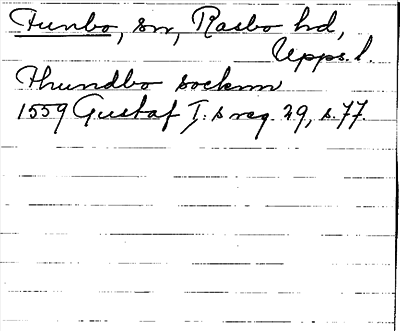 Funbo, sn, Rasbo hd,
Upps. l.
Fhundbo socknn
1559 Gustaf I. s reg. 29, s. 77.